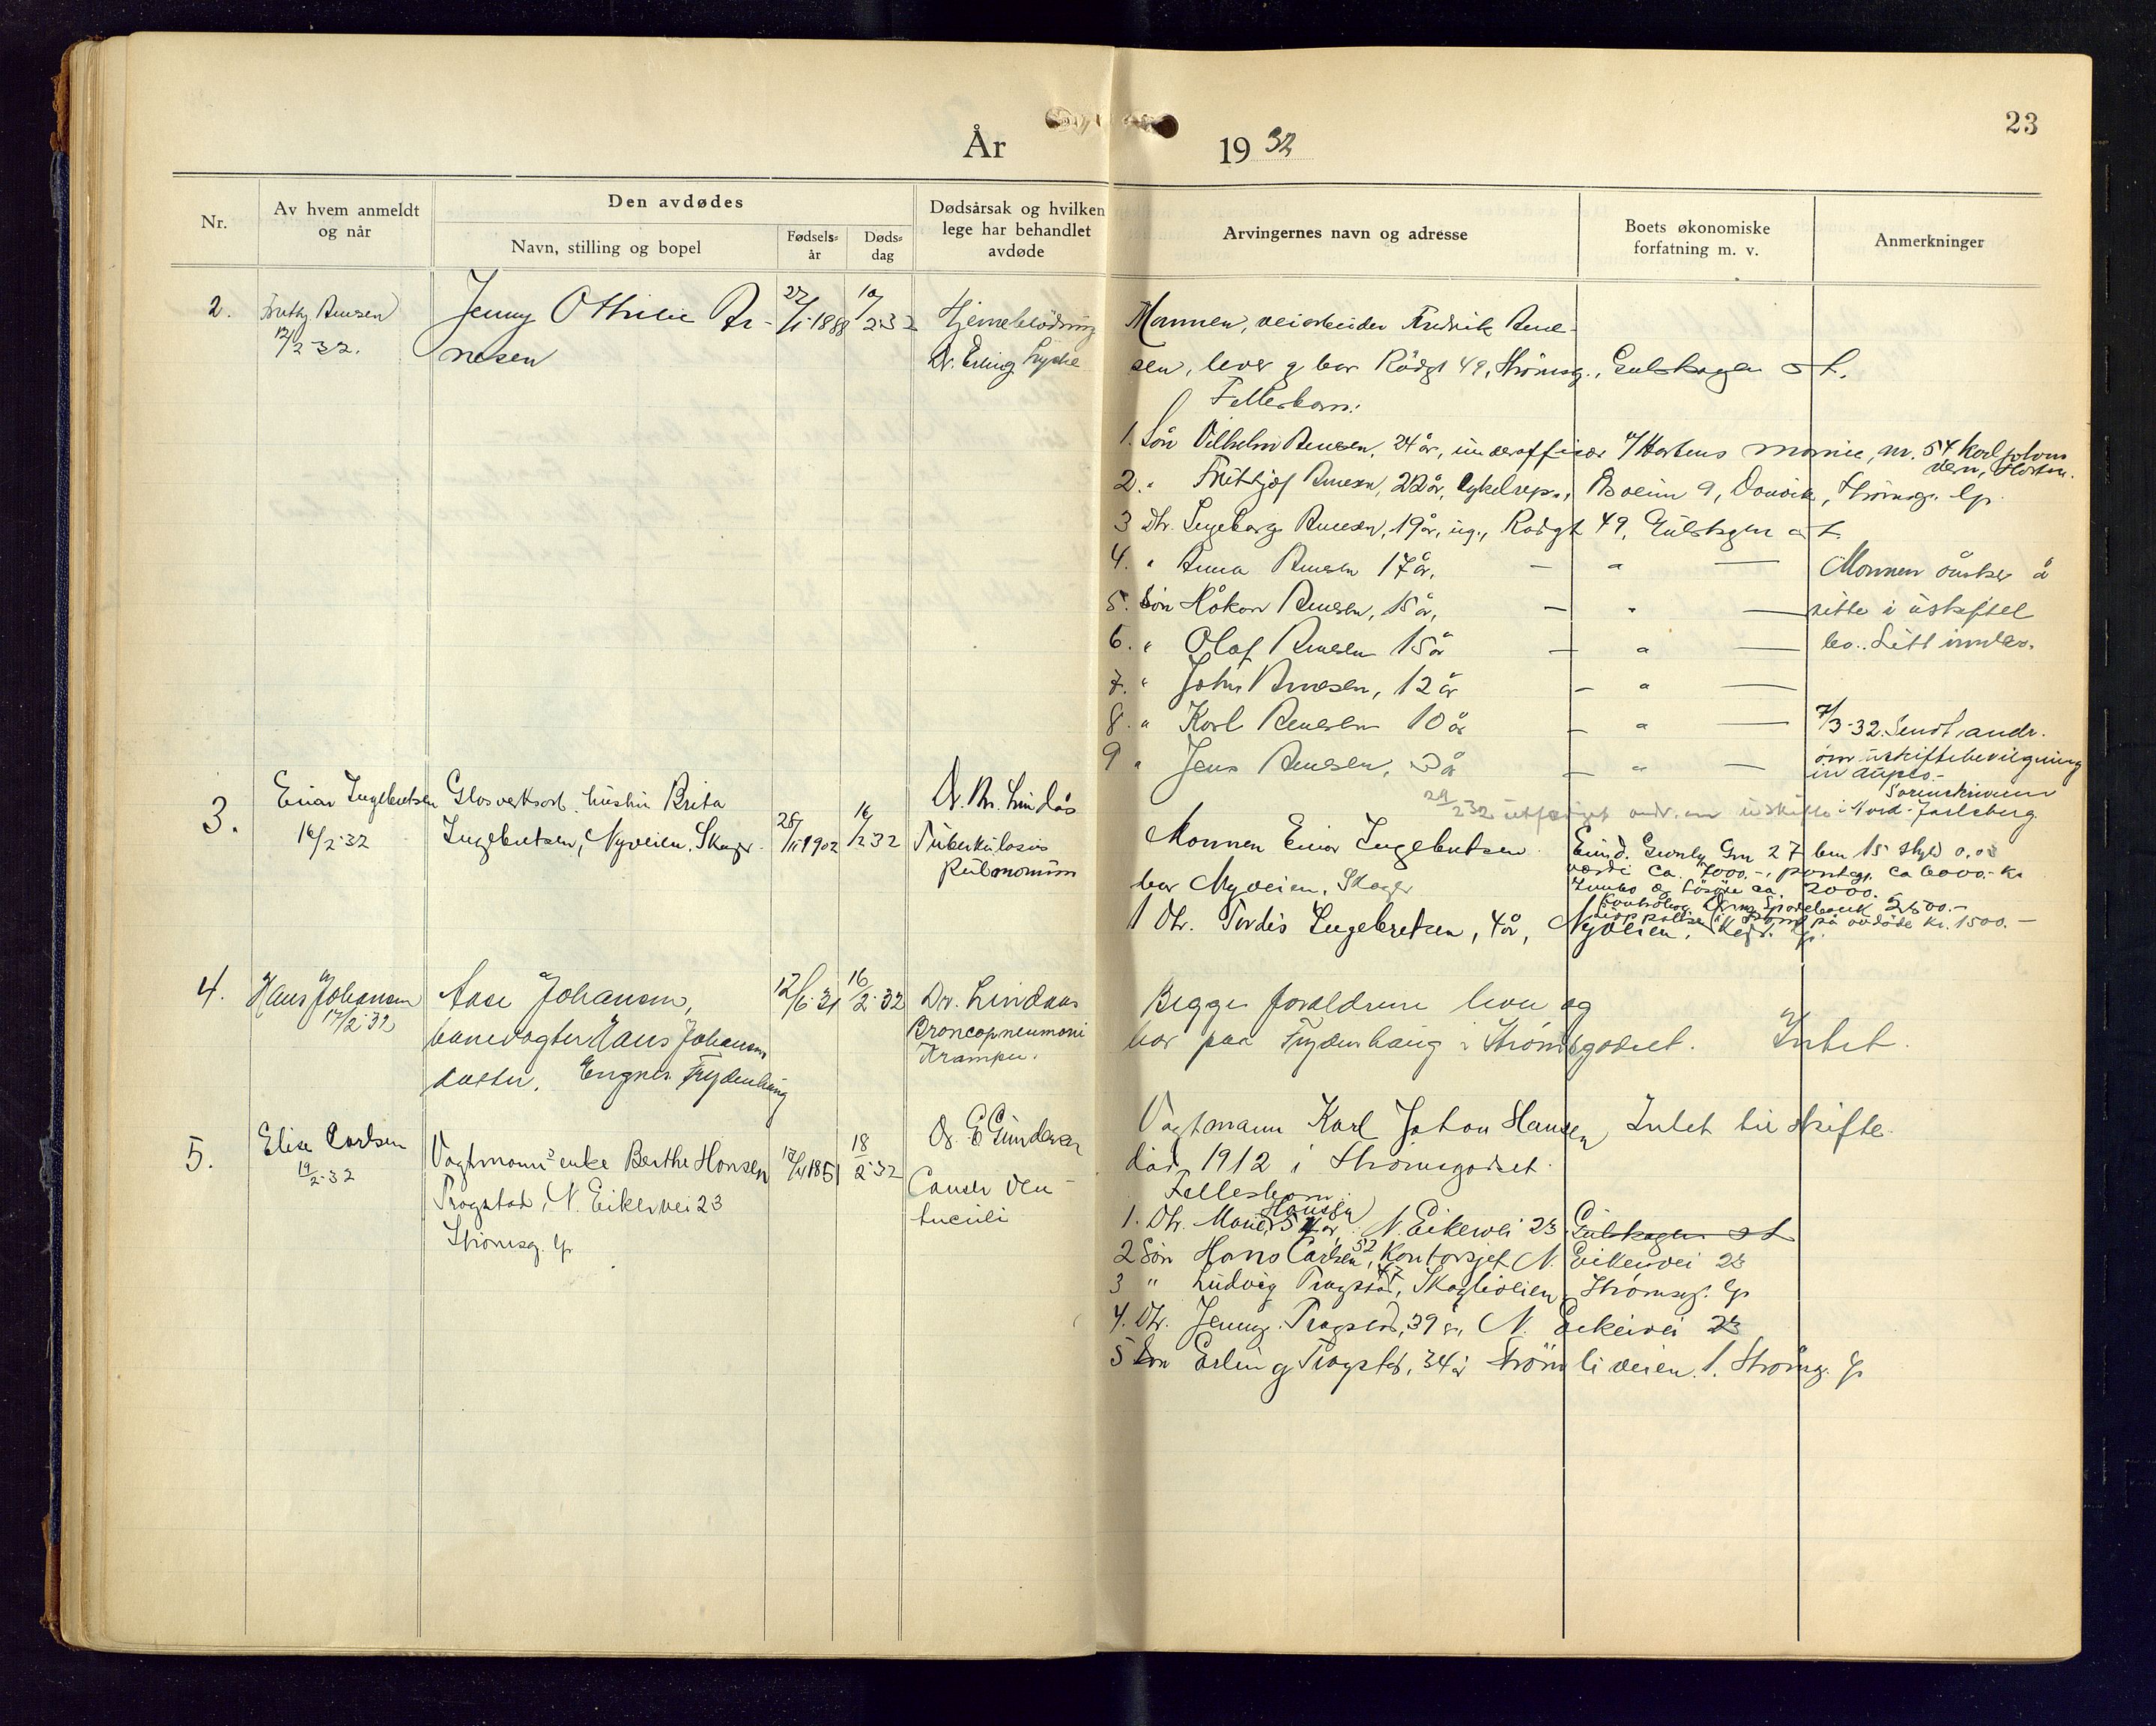 23
År 1932
Nr.
Av hvem anmeldt
og når
Den avdødes
Navn, stilling og bopel
Fødsels-
år
Døds-
dag
Dødsårsak og hvilken
lege har behandlet
avdøde
Arvingernes navn og adresse
Boets økonomiske
forfatning m. v.
Anmerkninger
2.
12/2 32.
Jenny Othilie Ar-
nesen
27/1-1888
10/2 32
Hjerneblødning
Dr. Erling
Mannen, veiarbeider Fredrik Arne-
sen, lever og bor Rådgt 49, Strømsg., Gulskogen st.
Fellesbarn:
1. Søn Vilhelm Arnesen, 24 år, underofficer Hortens marine, nr. 54 Karljohans
vern, Horten.
2. " Frithjof Arnesen, 22 år, Cykelrep., 9, Strømsg. lp.
3 Dtr. Ingeborg Arnesen, 19 år, ug., Rådgt 49, Gulskogen st.
4. " Anna Arnesen 17 år, — " —
5. Søn Håkon Arnesen, 15 år, — " —
6. " Olaf Arnesen 15 år — " —
7. " John Arnesen, 12 år — " —
8. " Karl Arnesen 10 år — " —
9 " Jens Arnesen, 3 år — " —
Mannen ønsker å
sitte i uskiftet
bo. Litt innbo.
7/3-32. Sendt andr.
om uskiftebevilgning
Sorenskriveren
i Nord-Jarlsberg.
29/2 32 utferdiget andr. om uskifte
3.
Einar Ingebretsen
16/2-32
Glasverksarb. hustru Brita
Ingebretsen, Nyveien, Skoger.
1902
16/2 32
Dr. Lindås
Tuberkulosis
Pulmonum
Mannen Einar Ingebretsen
bor Nyveien, Skoger
Eiend. Grønly Gnr 27 bnr 15 skyld
verdi ca. 7000.-, panteg. ca 6000.- kr
Innbo og løsøre ca. 2000.
2500.-
på avdøde kr. 1500.-
1 Dtr. Tordis Ingebretsen, 4 år, Nyveien,
4.
Hans Johansen
17/2-32
Aase Johansen,
banevogter Hans Johansens
datter. Engnes Frydenhaug
12/6-31
16/2-32
Dr. Lindaas
Broncopneumoni
Kramper.
Begge foreldrene lever og
bor paa Frydenhaug i Strømsgodset.
Intet.
5.
Elise Carlsen
19/2-32
Vagtmanns enke Berthe Hansen
Trogstad, N. Eikervei 23
Strømsg. lp
1851
18/2-32
Dr. E Gundersen
Cancer ven-
triculi
Vagtmann Karl Johan Hansen
død 1912 i Strømsgodset.
Intet til skifte.
Fellesbarn:
1. Dtr. Hansen 54 år, N. Eikervei 23 Gulskogen st
2 Søn Hans Carlsen, 52, Kontorsjef N. Eikervei 23
3 " Ludvig Trogstad, 47, Skogliveien Strømsg. lp
4. Dtr. Jenny Trogstad, 39 år, N. Eikervei 23
5 Søn Erling Trogstad, 34 år Strømliveien 1. Strømsg. lp